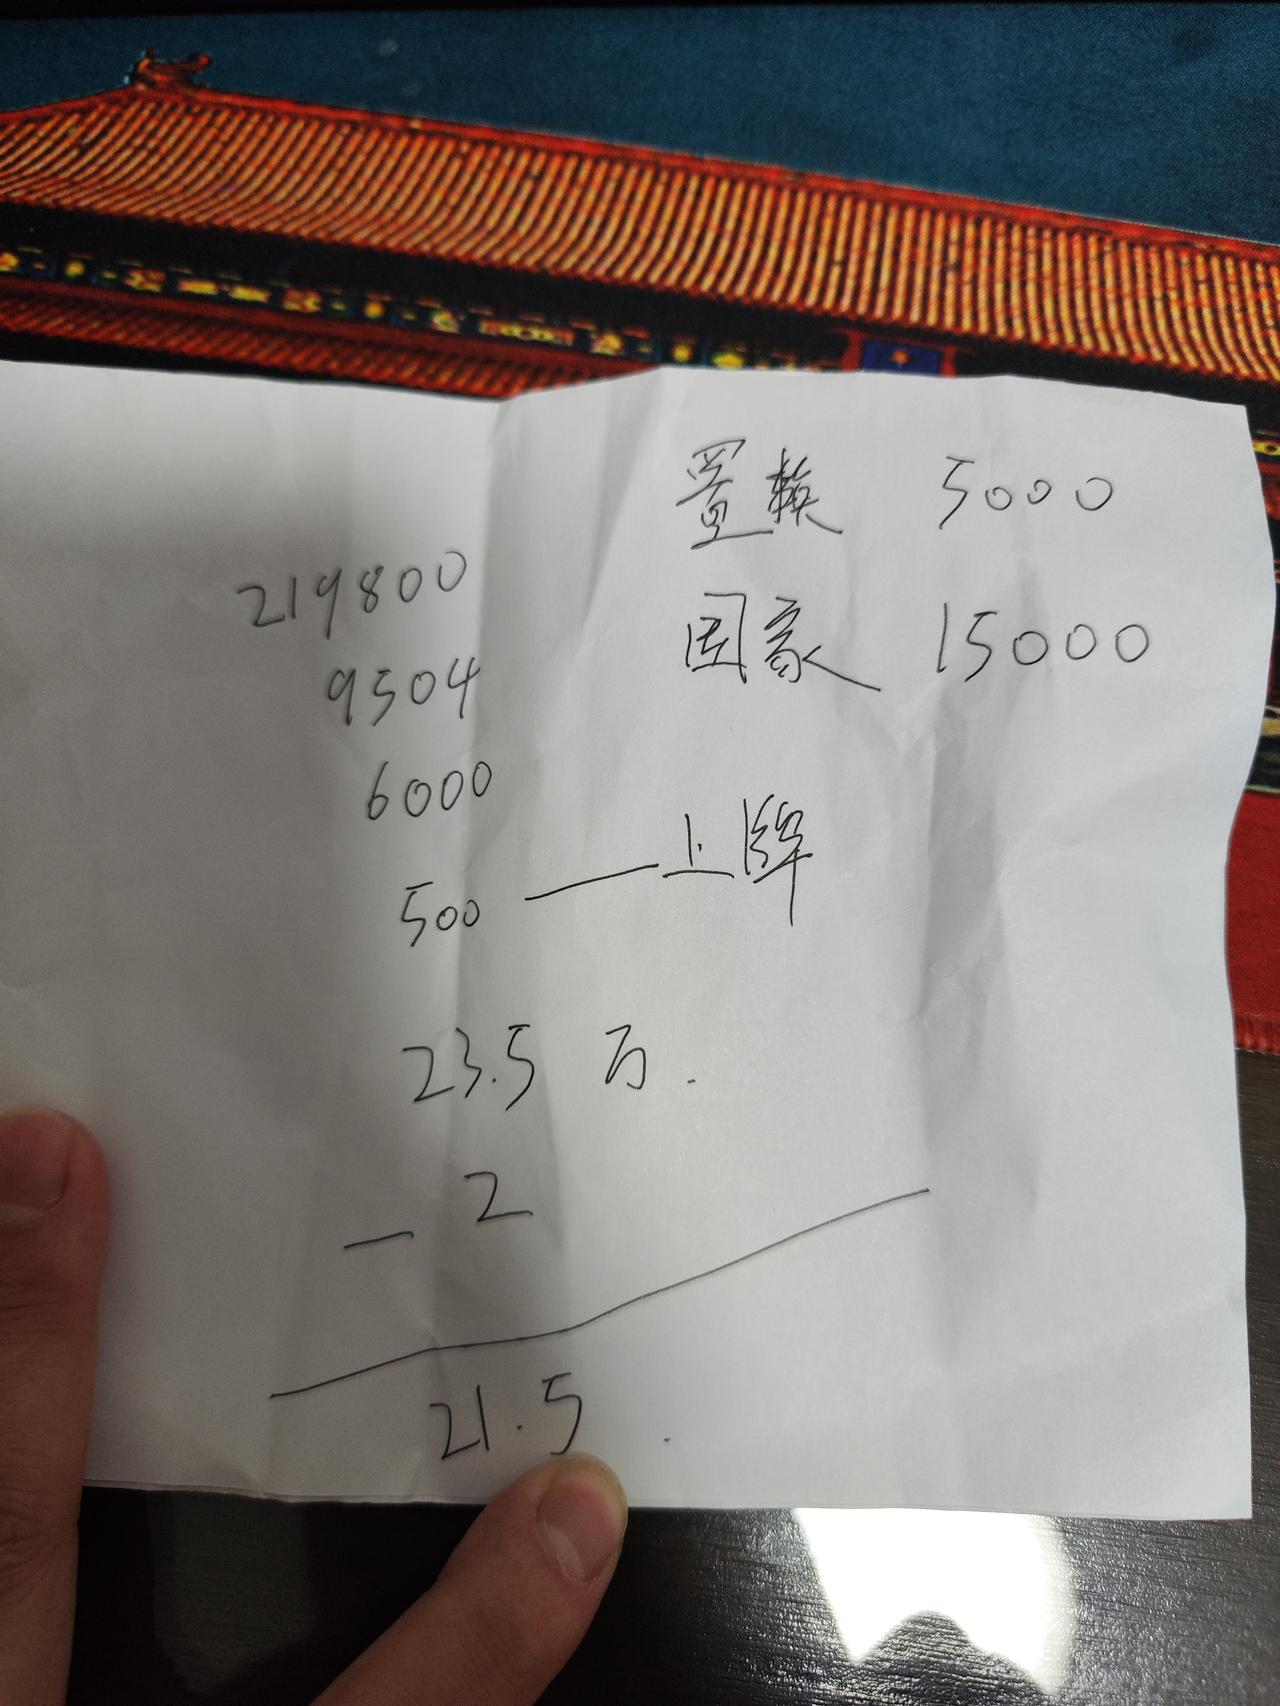 置换 5000
国家 15000
219800
9504
6000
500 —— 上牌
23.5 万.
- 2
21.5.